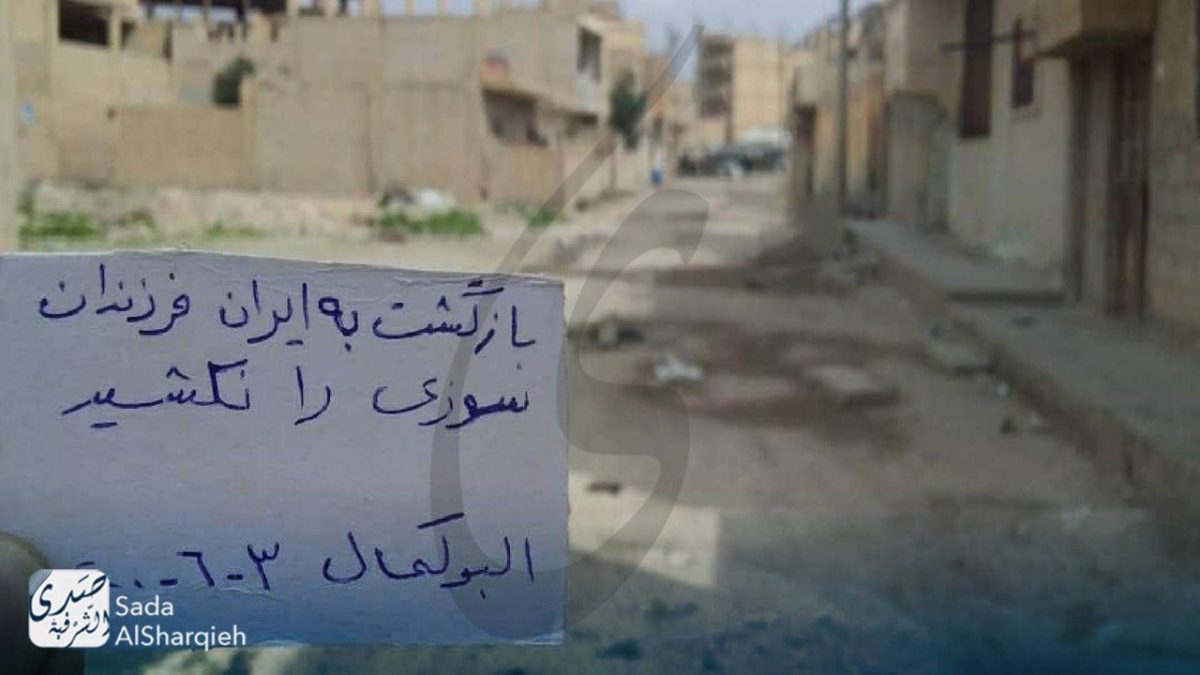 بازگشت به ایران فرزندان
سوزی را نکشید
البوكمال ٣-٦-
صدى الشرقية
Sada
AlSharqieh